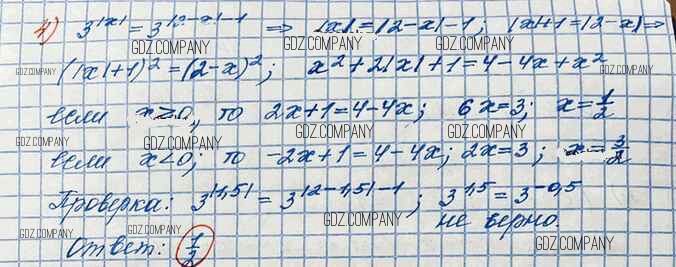 4) 3^|x| = 3^|2-x|-1 => |x| = |2-x|-1; |x|+1 = |2-x| =>
(|x|+1)² = (2-x)²; x²+2|x|+1 = 4-4x+x²
если x≥0, то 2x+1=4-4x; 6x=3; x=1/2
если x<0; то -2x+1=4-4x; 2x=3; x=3/2
Проверка: 3^|1,5| = 3^|2-1,5|-1; 3^1,5 = 3^-0,5
не верно.
Ответ: 1/2
GDZ.COMPANY
GDZ.COMPANY
GDZ.COMPANY
GDZ.COMPANY
GDZ.COMPANY
GDZ.COMPANY
GDZ.COMPANY
GDZ.COMPANY
GDZ.COMPANY
GDZ.COMPANY
GDZ.COMPANY
GDZ.COMPANY
GDZ.COMPANY